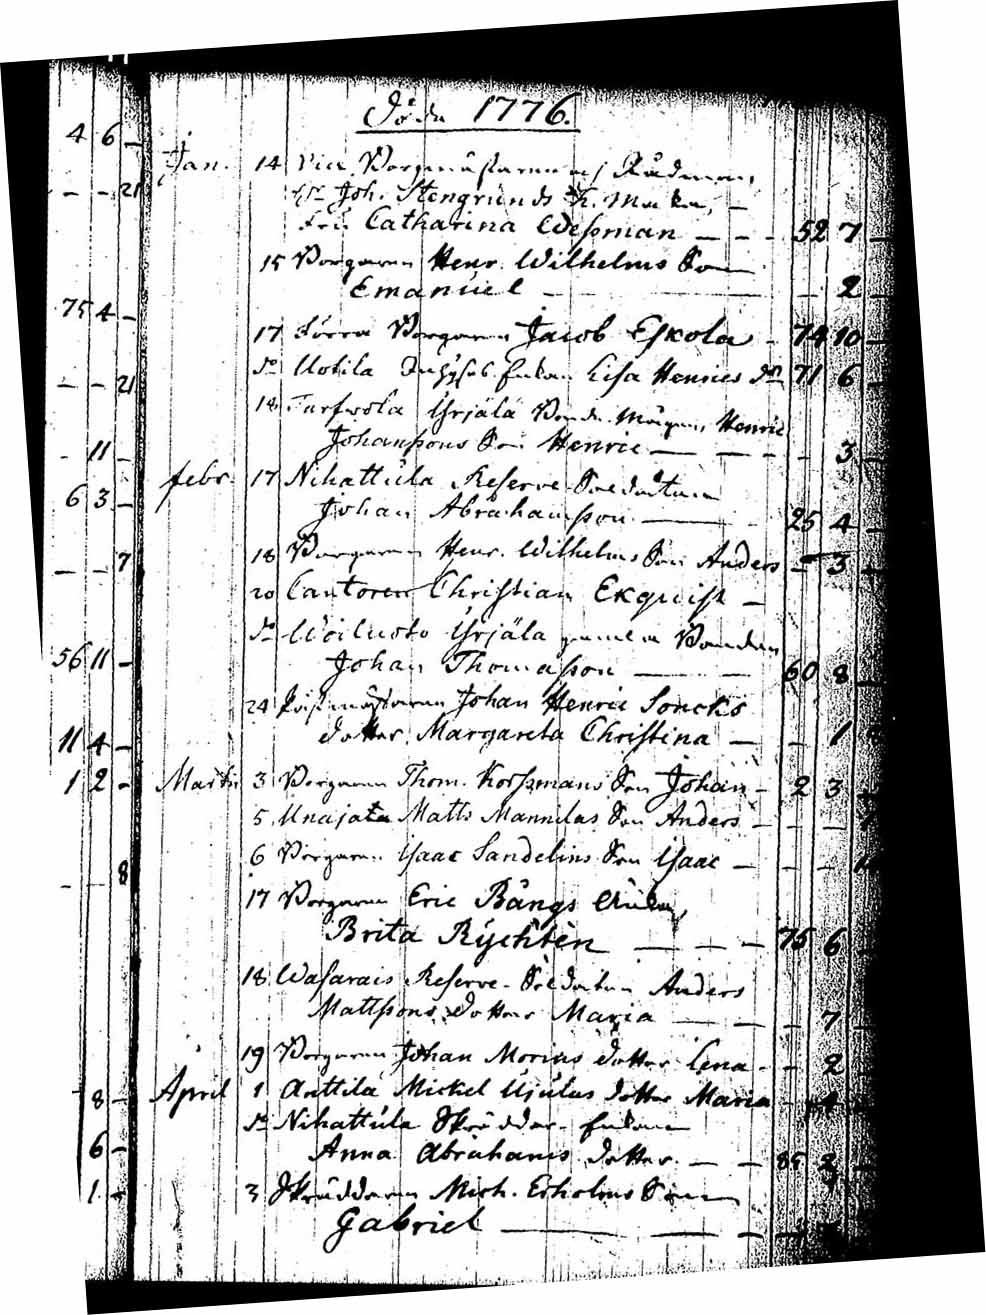 Döde 1776.
4 6 -
Jan. 14 Vice Borgmästarens, Rådman,
- - 21 Hr Joh. Stengrunds K. Maka,
Fru Catharina Weßman - - 52 7 -
15 Borgaren Henr. Wilhelms Son
Emanuel - 2 -
75 4 -
17 Förra Borgaren Jacob Eskola - 74 10 -
- - 21 do Uotila Inhyses Enkan Lisa Henrics dr 71 6 -
18 Yrjälä Henric
Johanssons Son Henric - 3 -
- 11 -
febr. 17 Nihattula Reserve Soldaten
6 3 - Johan Abrahamsson 25 4 -
18 Borgaren Henr. Wilhelms Son Anders - 3 -
- - 7
20 Cantoren Christian Ekquist -
do Woiluoto Yrjälä gamla Bonden
56 11 - Johan Thomasson 60 8 -
24 Postmästaren Johan Henric Soncks
11 4 - dotter Margareta Christina - - 1
1 2 - Martii 3 Borgaren Thom. Korßmans Son Johan - 2 3 -
5 Unajata Matts Mannilas Son Anders - - -
6 Borgaren Isaac Sandelins Son Isaac - - -
- - 8
17 Borgaren Eric Bångs Enka,
Brita Rychten - - - 75 6 -
18 Wasarais Reserve-Soldaten Anders
Mattssons dotter Maria - - 7 -
19 Borgaren Johan Morins dotter Lena - - 2 -
8 - April 1 Anttila Mickel Ujulas dotter Maria
do Nihattula Skräddar-Enkan
6 - Anna Abrahams dotter - - 85 2 -
1 - 3 Skräddaren Mich. Erholms Son
Gabriel